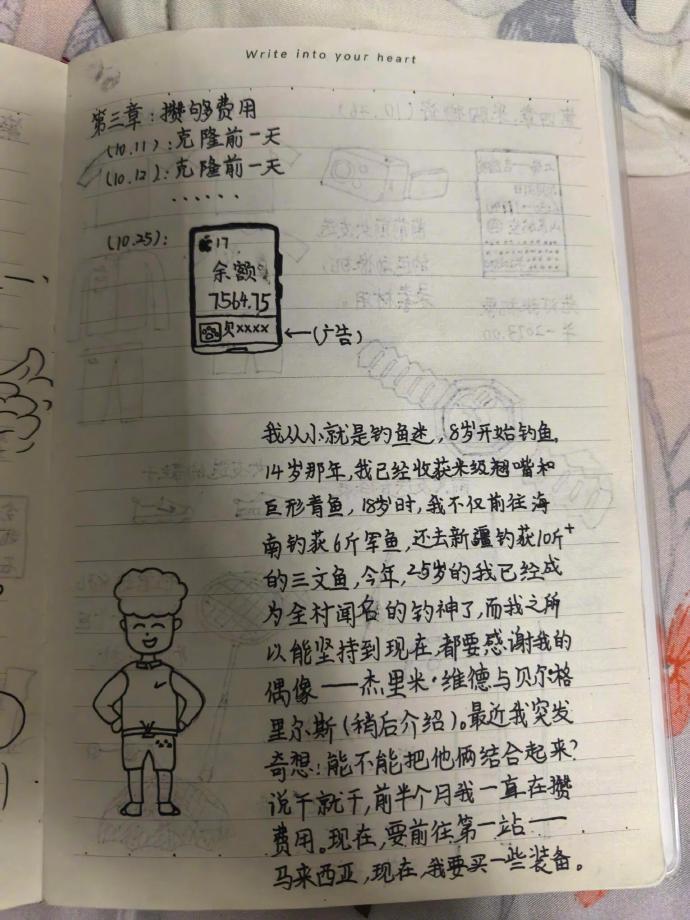 Write into your heart
第三章：攒够费用
(10.11)：克隆前一天
(10.12)：克隆前一天
······
(10.25)：
17
余额
7564.75
贝xxxx
←(广告)
我从小就是钓鱼迷，8岁开始钓鱼，
14岁那年，我已经收获米级翘嘴和
巨形青鱼，18岁时，我不仅前往海
南钓获6斤军鱼，还去新疆钓获10斤+
的三文鱼，今年，25岁的我已经成
为全村闻名的钓神了，而我之所
以能坚持到现在，都要感谢我的
偶像——杰里米·维德与贝尔·格
里尔斯(稍后介绍)。最近我突发
奇想：能不能把他俩结合起来？
说干就干，前半个月我一直在攒
费用。现在，要前往第一站——
马来西亚，现在，我要买一些装备。